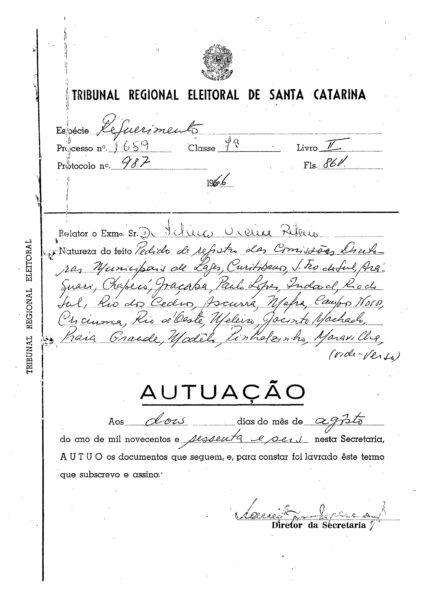 TRIBUNAL REGIONAL ELEITORAL DE SANTA CATARINA
Espécie Requerimento
Processo nº. 1659 Classe 9ª Livro V
Protocolo nº. 987 Fls. 86v.
1966
Relator o Exmo. Sr. Dr. Vieira
Natureza do feito Pedido de registro das Comissões Direto-
ras Municipais de Lajes, Curitibanos, S. Fco do Sul, Ara-
quari, Chapecó, Joaçaba, Paulo Lopes, Indaial, Rio do
Sul, Rio do Cedro, Ascurra, Mafra, Campo Novo,
Criciuma, Rio d'Oeste, Meleiro, Jacinto Machado,
Praia Grande, Modelo, Pinhalzinho, Maravilha,
(vide-verso)
TRIBUNAL REGIONAL ELEITORAL
AUTUAÇÃO
Aos dois dias do mês de agôsto
do ano de mil novecentos e sessenta e seis nesta Secretaria,
AUTUO os documentos que seguem, e, para constar foi lavrado êste termo
que subscrevo e assino.
Diretor da Secretaria